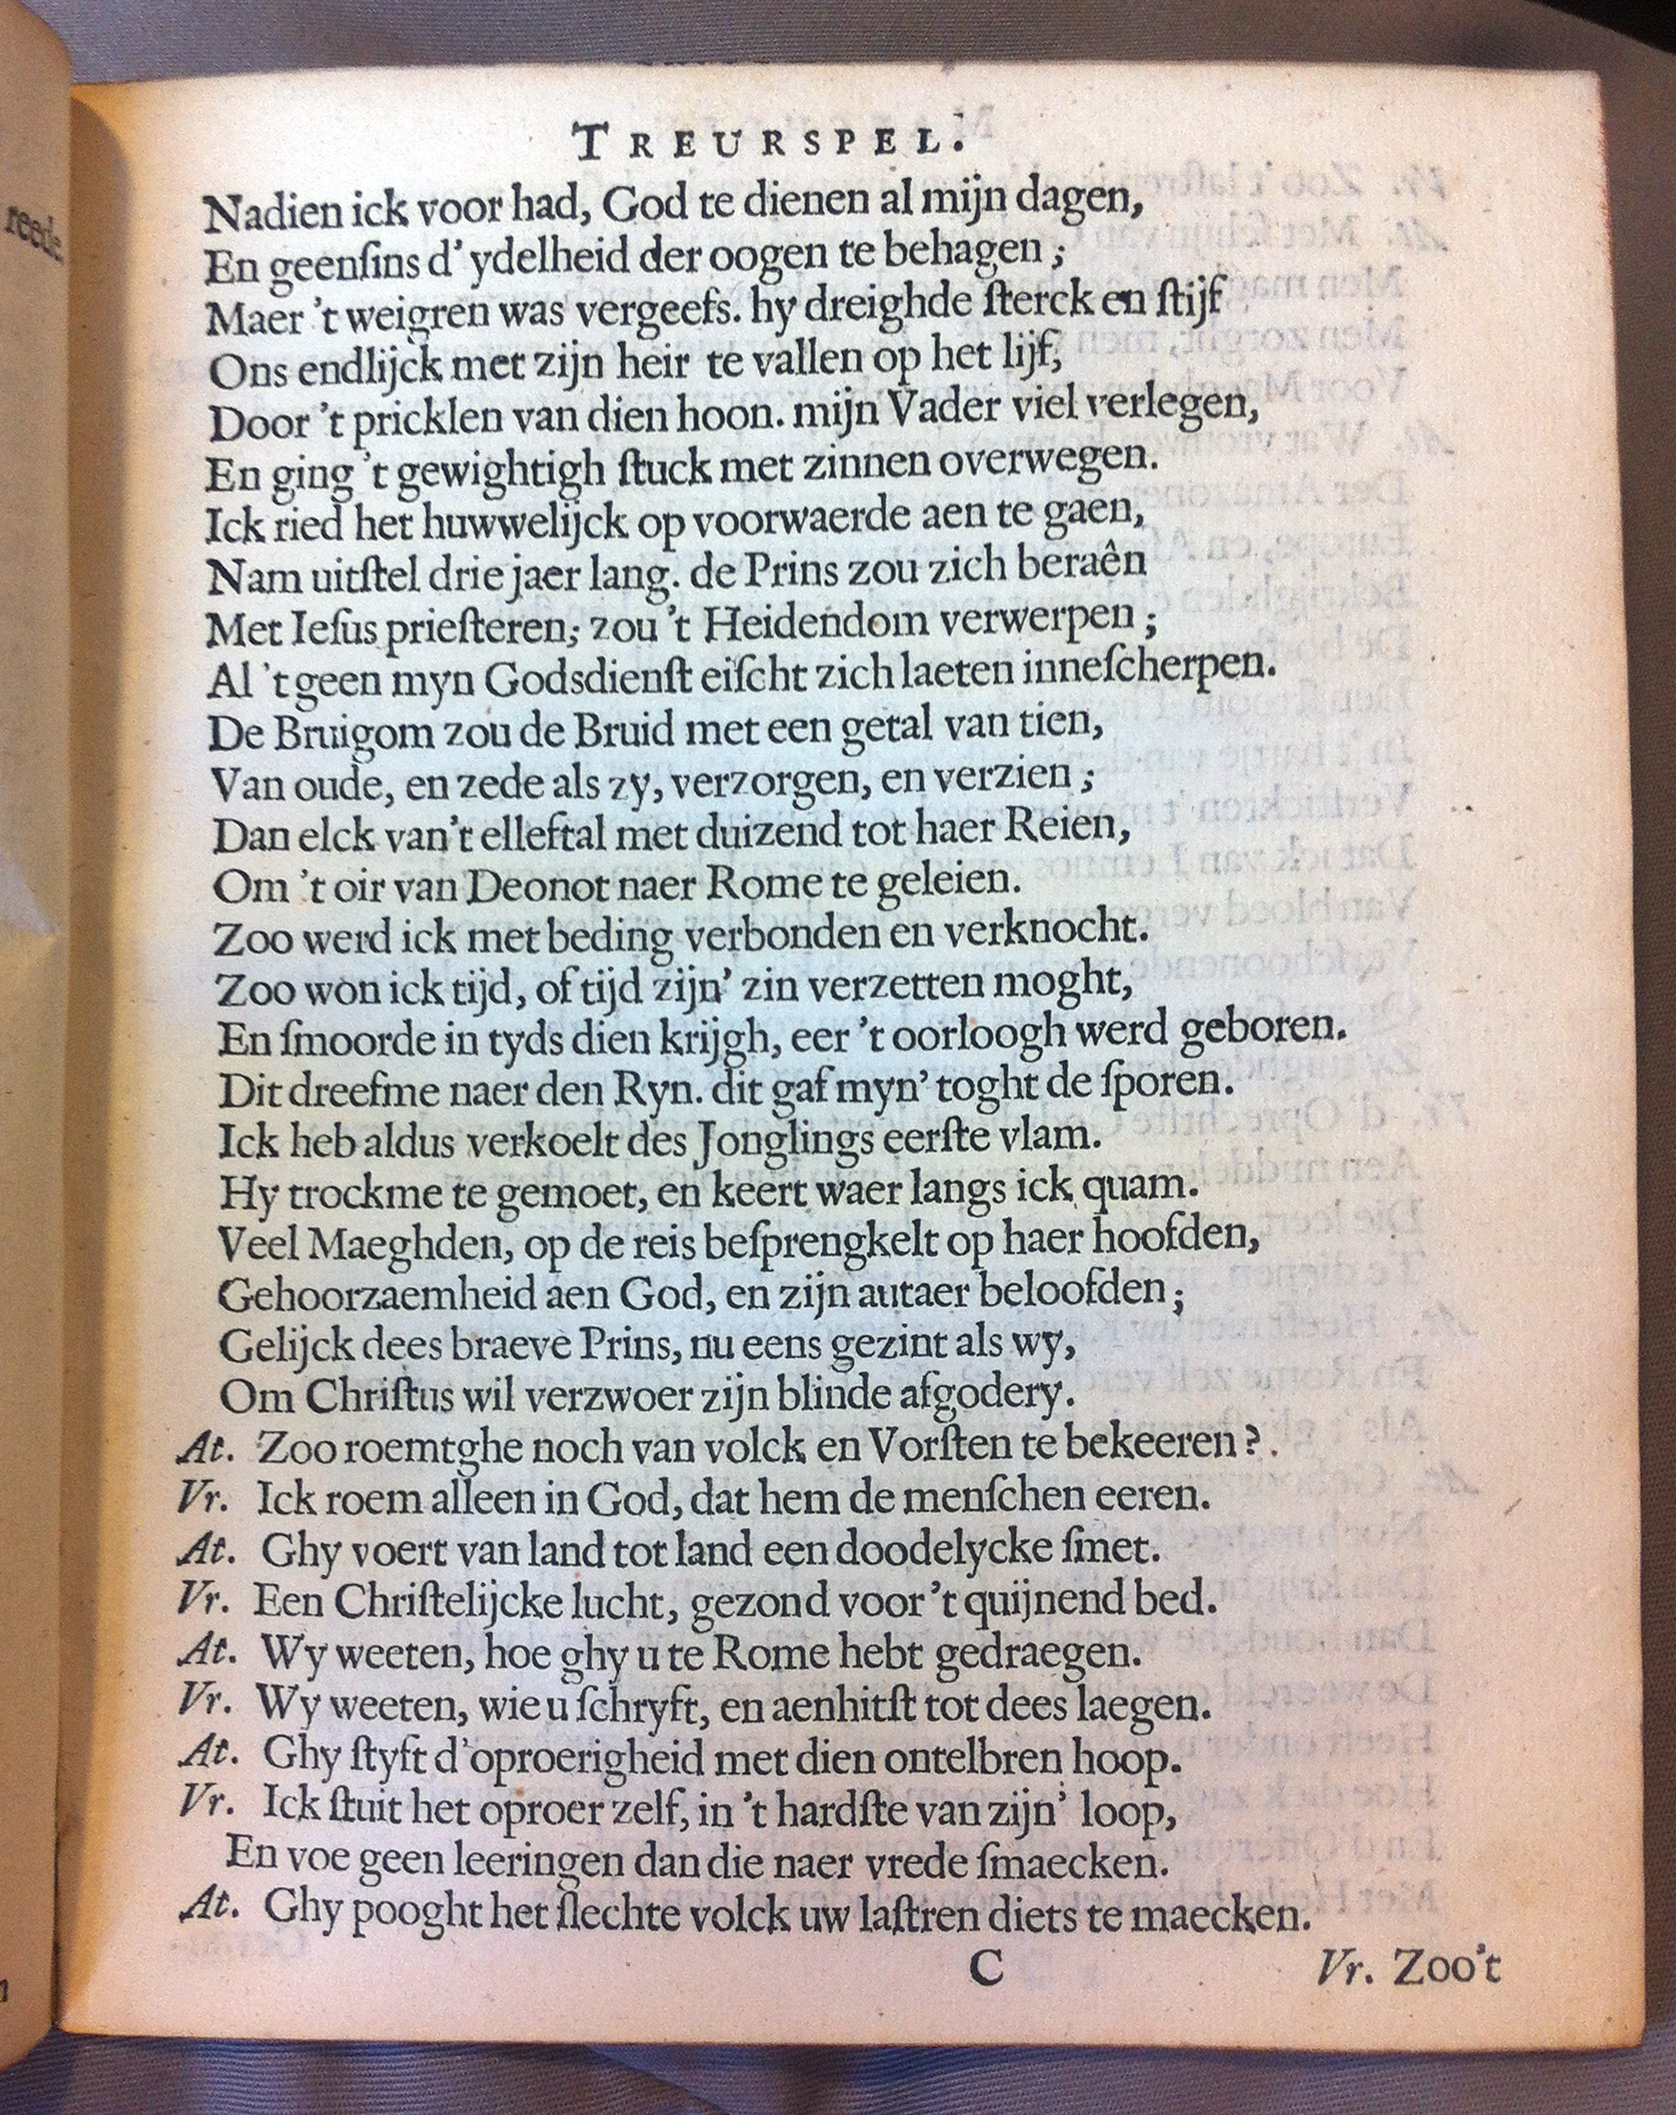 TREURSPEL.
Nadien ick voor had, God te dienen al mijn dagen,
En geenſins d' ydelheid der oogen te behagen;
Maer 't weigren was vergeefs. hy dreighde ſterck en ſtijf
Ons endlijck met zijn heir te vallen op het lijf,
Door 't pricklen van dien hoon. mijn Vader viel verlegen,
En ging 't gewightigh ſtuck met zinnen overwegen.
Ick ried het huwwelijck op voorwaerde aen te gaen,
Nam uitſtel drie jaer lang. de Prins zou zich beraên
Met Ieſus prieſteren; zou 't Heidendom verwerpen;
Al 't geen myn Godsdienſt eiſcht zich laeten inneſcherpen.
De Bruigom zou de Bruid met een getal van tien,
Van oude, en zede als zy, verzorgen, en verzien;
Dan elck van't elleftal met duizend tot haer Reien,
Om 't oir van Deonot naer Rome te geleien.
Zoo werd ick met beding verbonden en verknocht.
Zoo won ick tijd, of tijd zijn' zin verzetten moght,
En ſmoorde in tyds dien krijgh, eer 't oorloogh werd geboren.
Dit dreefme naer den Ryn. dit gaf myn' toght de ſporen.
Ick heb aldus verkoelt des Jonglings eerſte vlam.
Hy trockme te gemoet, en keert waer langs ick quam.
Veel Maeghden, op de reis beſprengkelt op haer hoofden,
Gehoorzaemheid aen God, en zijn autaer beloofden;
Gelijck dees braeve Prins, nu eens gezint als wy,
Om Chriſtus wil verzwoer zijn blinde afgodery.
At. Zoo roemtghe noch van volck en Vorſten te bekeeren?.
Vr. Ick roem alleen in God, dat hem de menſchen eeren.
At. Ghy voert van land tot land een doodelycke ſmet.
Vr. Een Chriſtelijcke lucht, gezond voor 't quijnend bed.
At. Wy weeten, hoe ghy u te Rome hebt gedraegen.
Vr. Wy weeten, wie u ſchryft, en aenhitſt tot dees laegen.
At. Ghy ſtyft d'oproerigheid met dien ontelbren hoop.
Vr. Ick ſtuit het oproer zelf, in 't hardſte van zijn' loop,
En voe geen leeringen dan die naer vrede ſmaecken.
At. Ghy pooght het ſlechte volck uw laſtren diets te maecken.
C Vr. Zoo't
reede